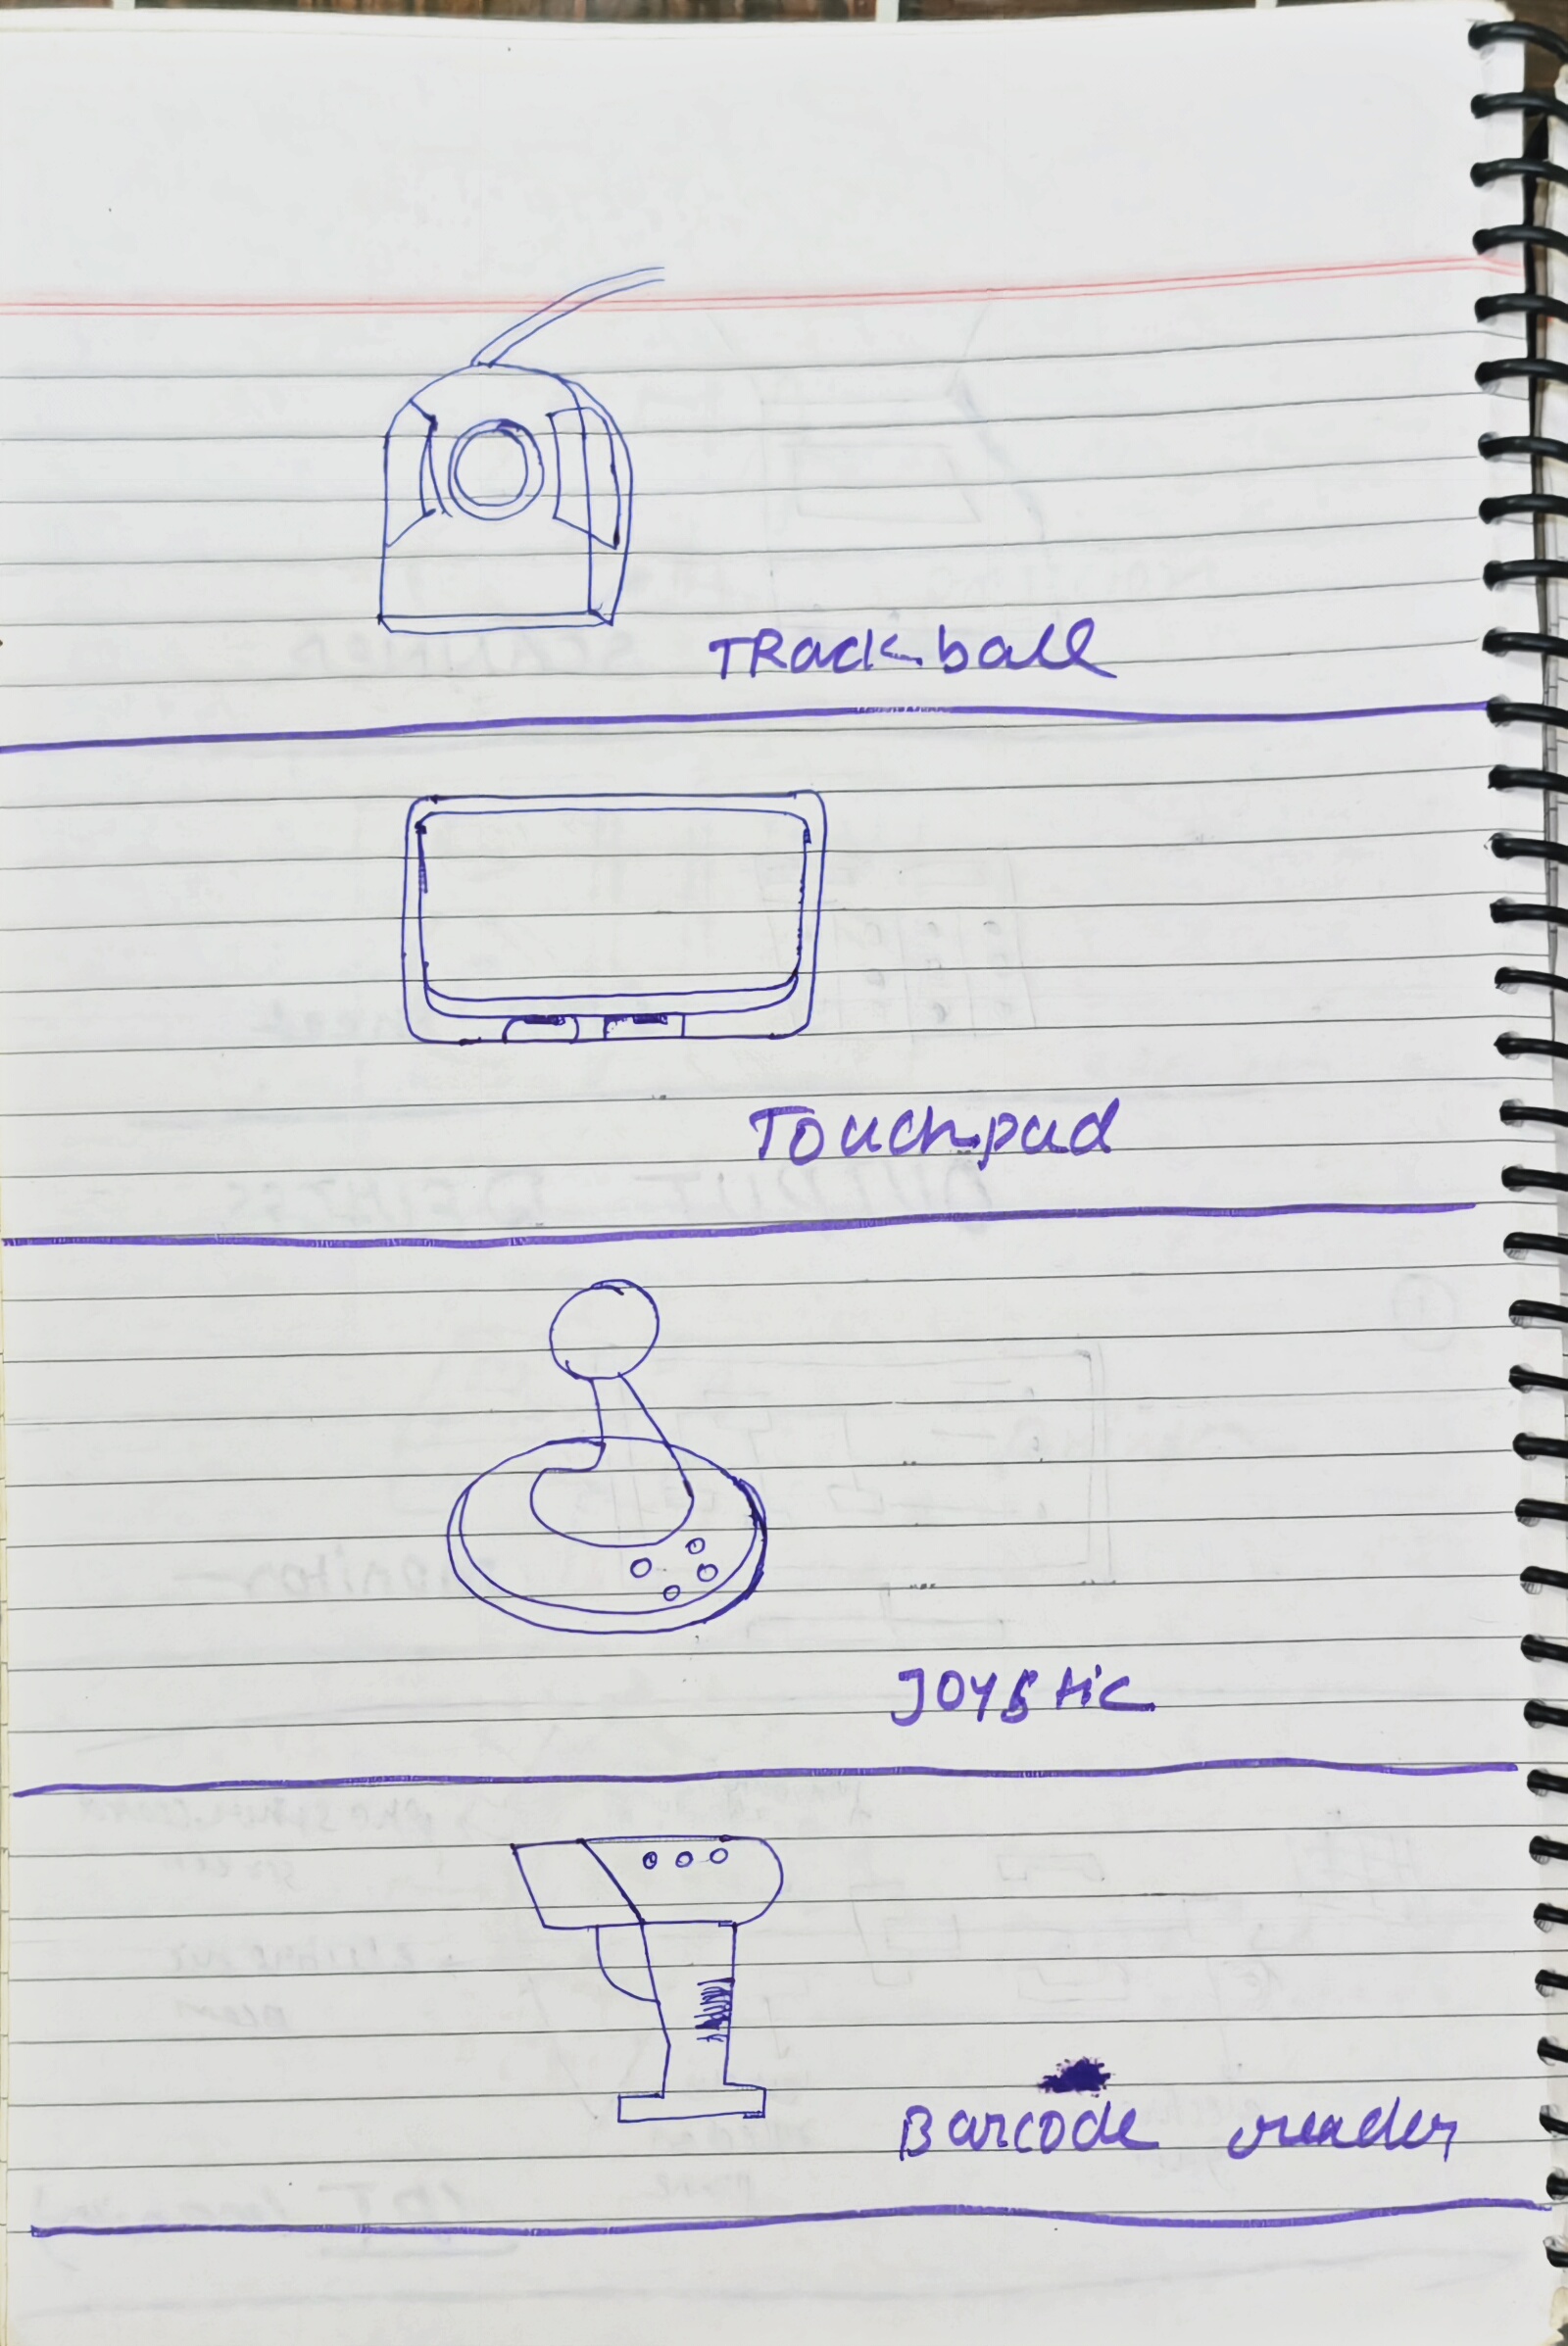 TRackball
Touchpad
Joystic
Barcode reader